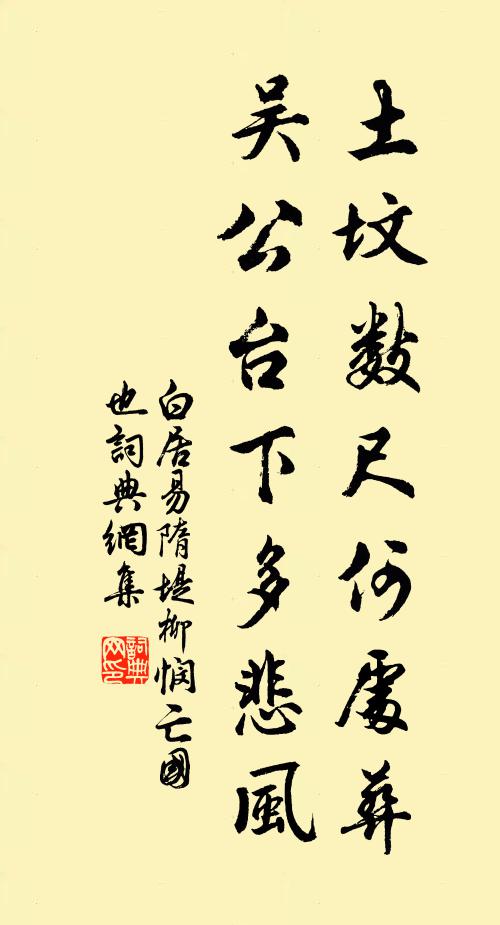 土坟数尺何處葬
吴公台下多悲風
白居易隋堤柳悯亡國
也詞典網集
詞典
网印